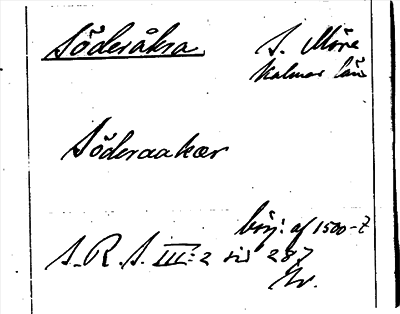 Söderåkra S. Möre
Kalmar län
Söderaakær
börj: af 1500-t
S.R.S. III:2 sid 287